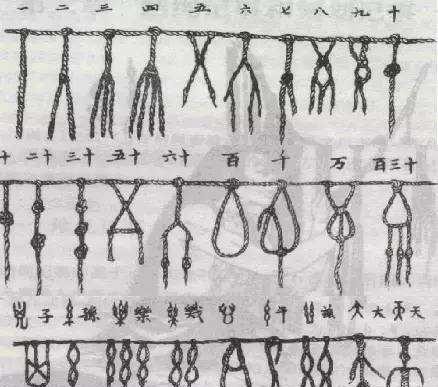 一 二 三 四 五 六 七 八 九 十
十 二十 三十 五十 六十 百 千 万 百三十
子 孫 樂 大 天